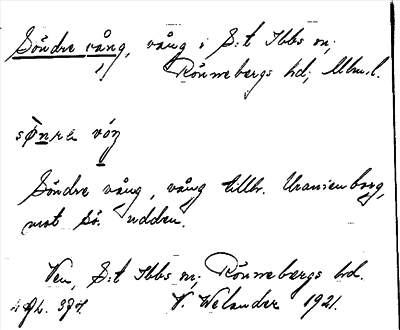 Söndre vång, vång i S:t Ibbs sn;
Rönnebergs hd; Mlm.l.
sǿnrə vóŋ
Söndre vång, vång tillhr. Uranienborg,
mot Sö. udden.
Ven, S:t Ibbs sn; Rönnebergs hd.
V. Welander 1921.